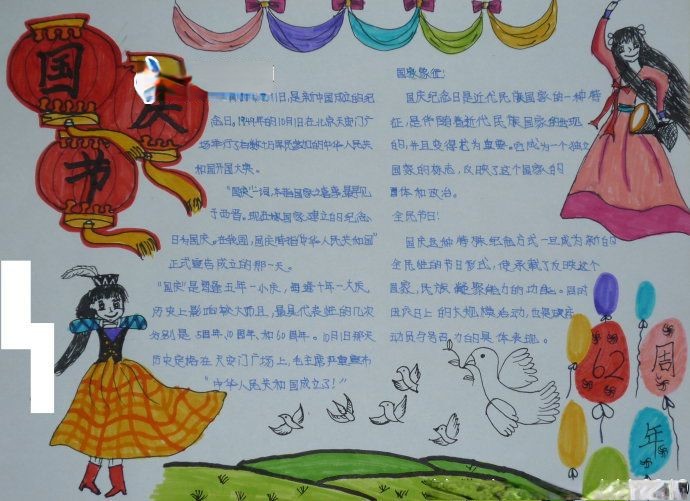 国
庆
节
11日,是新中国成立的纪
念日。1949年的10月1日在北京天安门广
场举行了有数十万军民参加的中华人民共
和国开国大典。
"国庆"一词,本指国家之喜事,最早见
于西晋。现在
国家建立的纪念
日称国庆。在我国,国庆特指"中华人民共和国"
正式宣告成立的那一天。
"国庆"是逢五年一小庆,每逢十年一大庆。
历史上影响较大而且,最具代表性的几次
分别是 5周年、10周年、和60周年。10月1日那天
历史定格在天安门广场上,毛主席严重宣布
"中华人民共和国成立了!"
国家象征:
国庆纪念日是近代民族国家的一种特
征,是伴随着近代民族国家的出现
的,并且变得尤为重要。它成为一个独立
国家的标志,反映了这个国家的
国体和政治。
全民节日:
国庆这种特殊纪念方式一旦成为新的
全民性的节日形式,便承载了反映这个
国家,民族凝聚能力的功能。同时
国庆日上的大规模活动,也是政府
动员与号召力的具体表现。
62
周
年